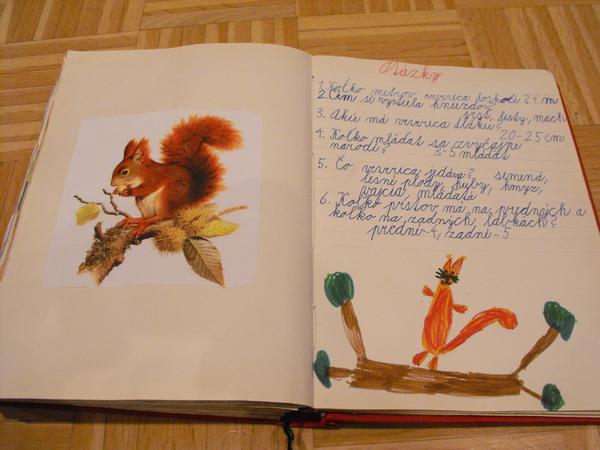 Otázky
1. Koľko metrov veverica doskočí? 4 m
2. Čím si vystiela hniezdo?
srsť, listy, mach
3. Akú má veverica dĺžku?
20-25 cm
4. Koľko mláďat sa zvyčajne
narodí? 3-5 mláďat
5. Čo veverica jedáva? semená,
lesné plody, huby, hmyz,
vajcia mláďatá
6. Koľko prstov má na predných a
koľko na zadných labkách?
predné-4, zadné-5